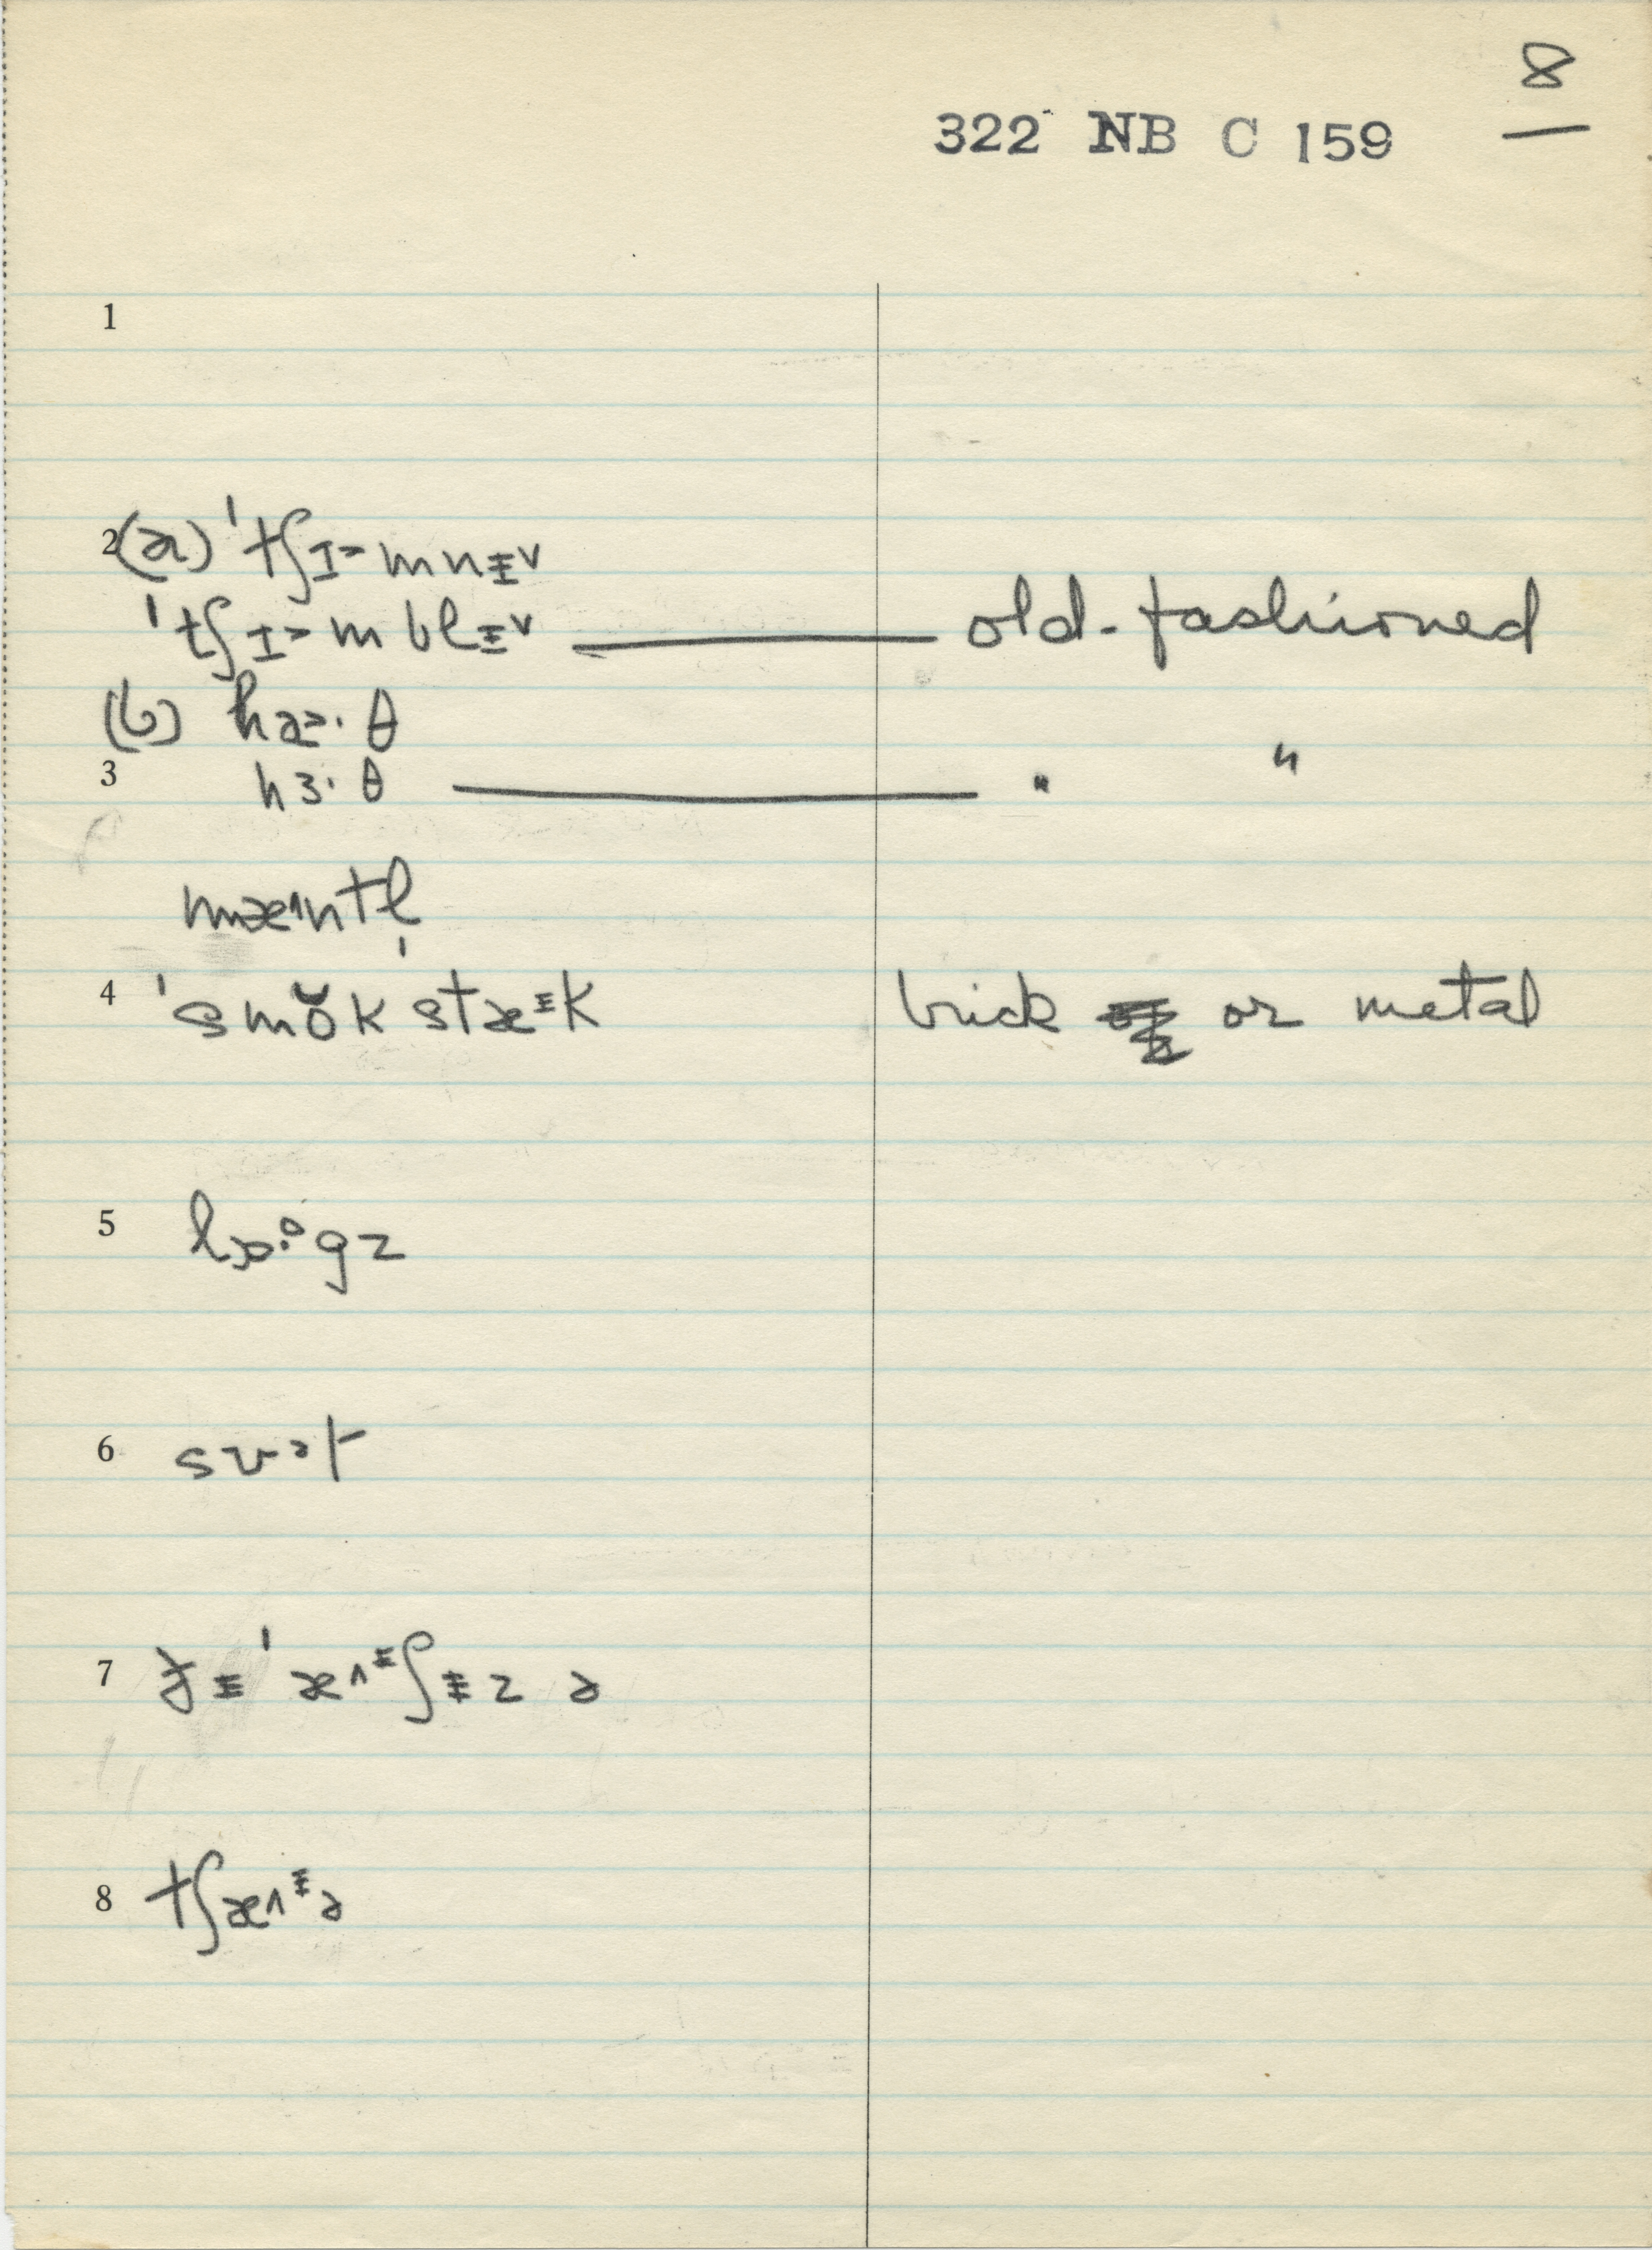 8
322 NB C 159
1
2 (a) ˈtʃɪ˃mnɨv
ˈtʃɪ˃mblɨv — old-fashioned
(b) ha˃·θ
3 hɜ·θ — " "
mæ˄ntl̩
4 ˈsmŏk stæᵻk brick or metal
5 lɒ·ᵒgz
6
7 ðɨ ˈæ˄ᵻʃɨz ə
8 tʃæ˄ᵻə